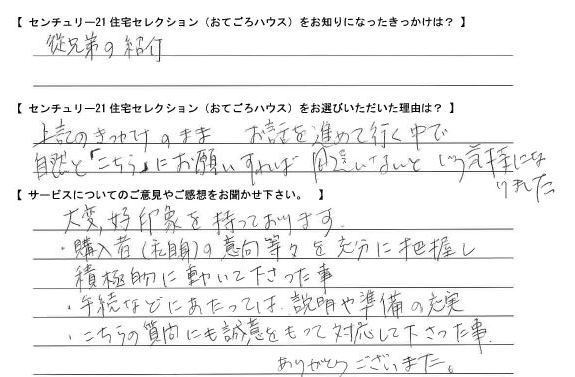 【 センチュリー21 住宅セレクション（おてごろハウス）をお知りになったきっかけは？ 】
従兄弟の紹介
【 センチュリー21 住宅セレクション（おてごろハウス）をお選びいただいた理由は？ 】
上記のきっかけのまま お話を進めて行く中で
自然と「こちら」にお願いすれば 間違いないと いう気持にな
りました
【 サービスについてのご意見やご感想をお聞かせ下さい。 】
大変,好印象を持っております.
・購入者(私自身)の意向等々を充分に把握し
積極的に動いて下さった事
・手続などにあたっては、説明や準備の充実
・こちらの質問にも誠意をもって対応して下さった事.
ありがとうございました。